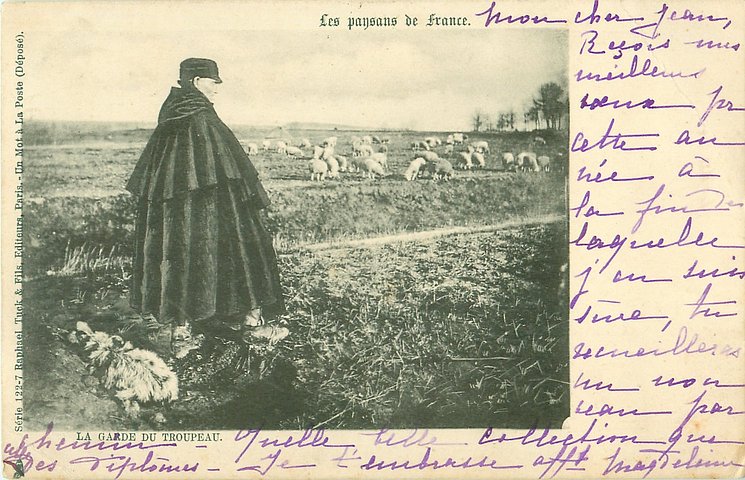 Les paysans de France.
Mon cher Jean,
Reçois mes
meilleurs
vœux pr
cette an
née à
la fin de
laquelle
j'en suis
sûre, tu
recueilleras
un nou
veau par
chemin - Quelle belle collection que
des diplômes - Je t'embrasse afft Magdeleine
LA GARDE DU TROUPEAU.
Série 122-7 Raphael Tuck & Fils, Editeurs, Paris. - Un Mot à La Poste (Déposé).